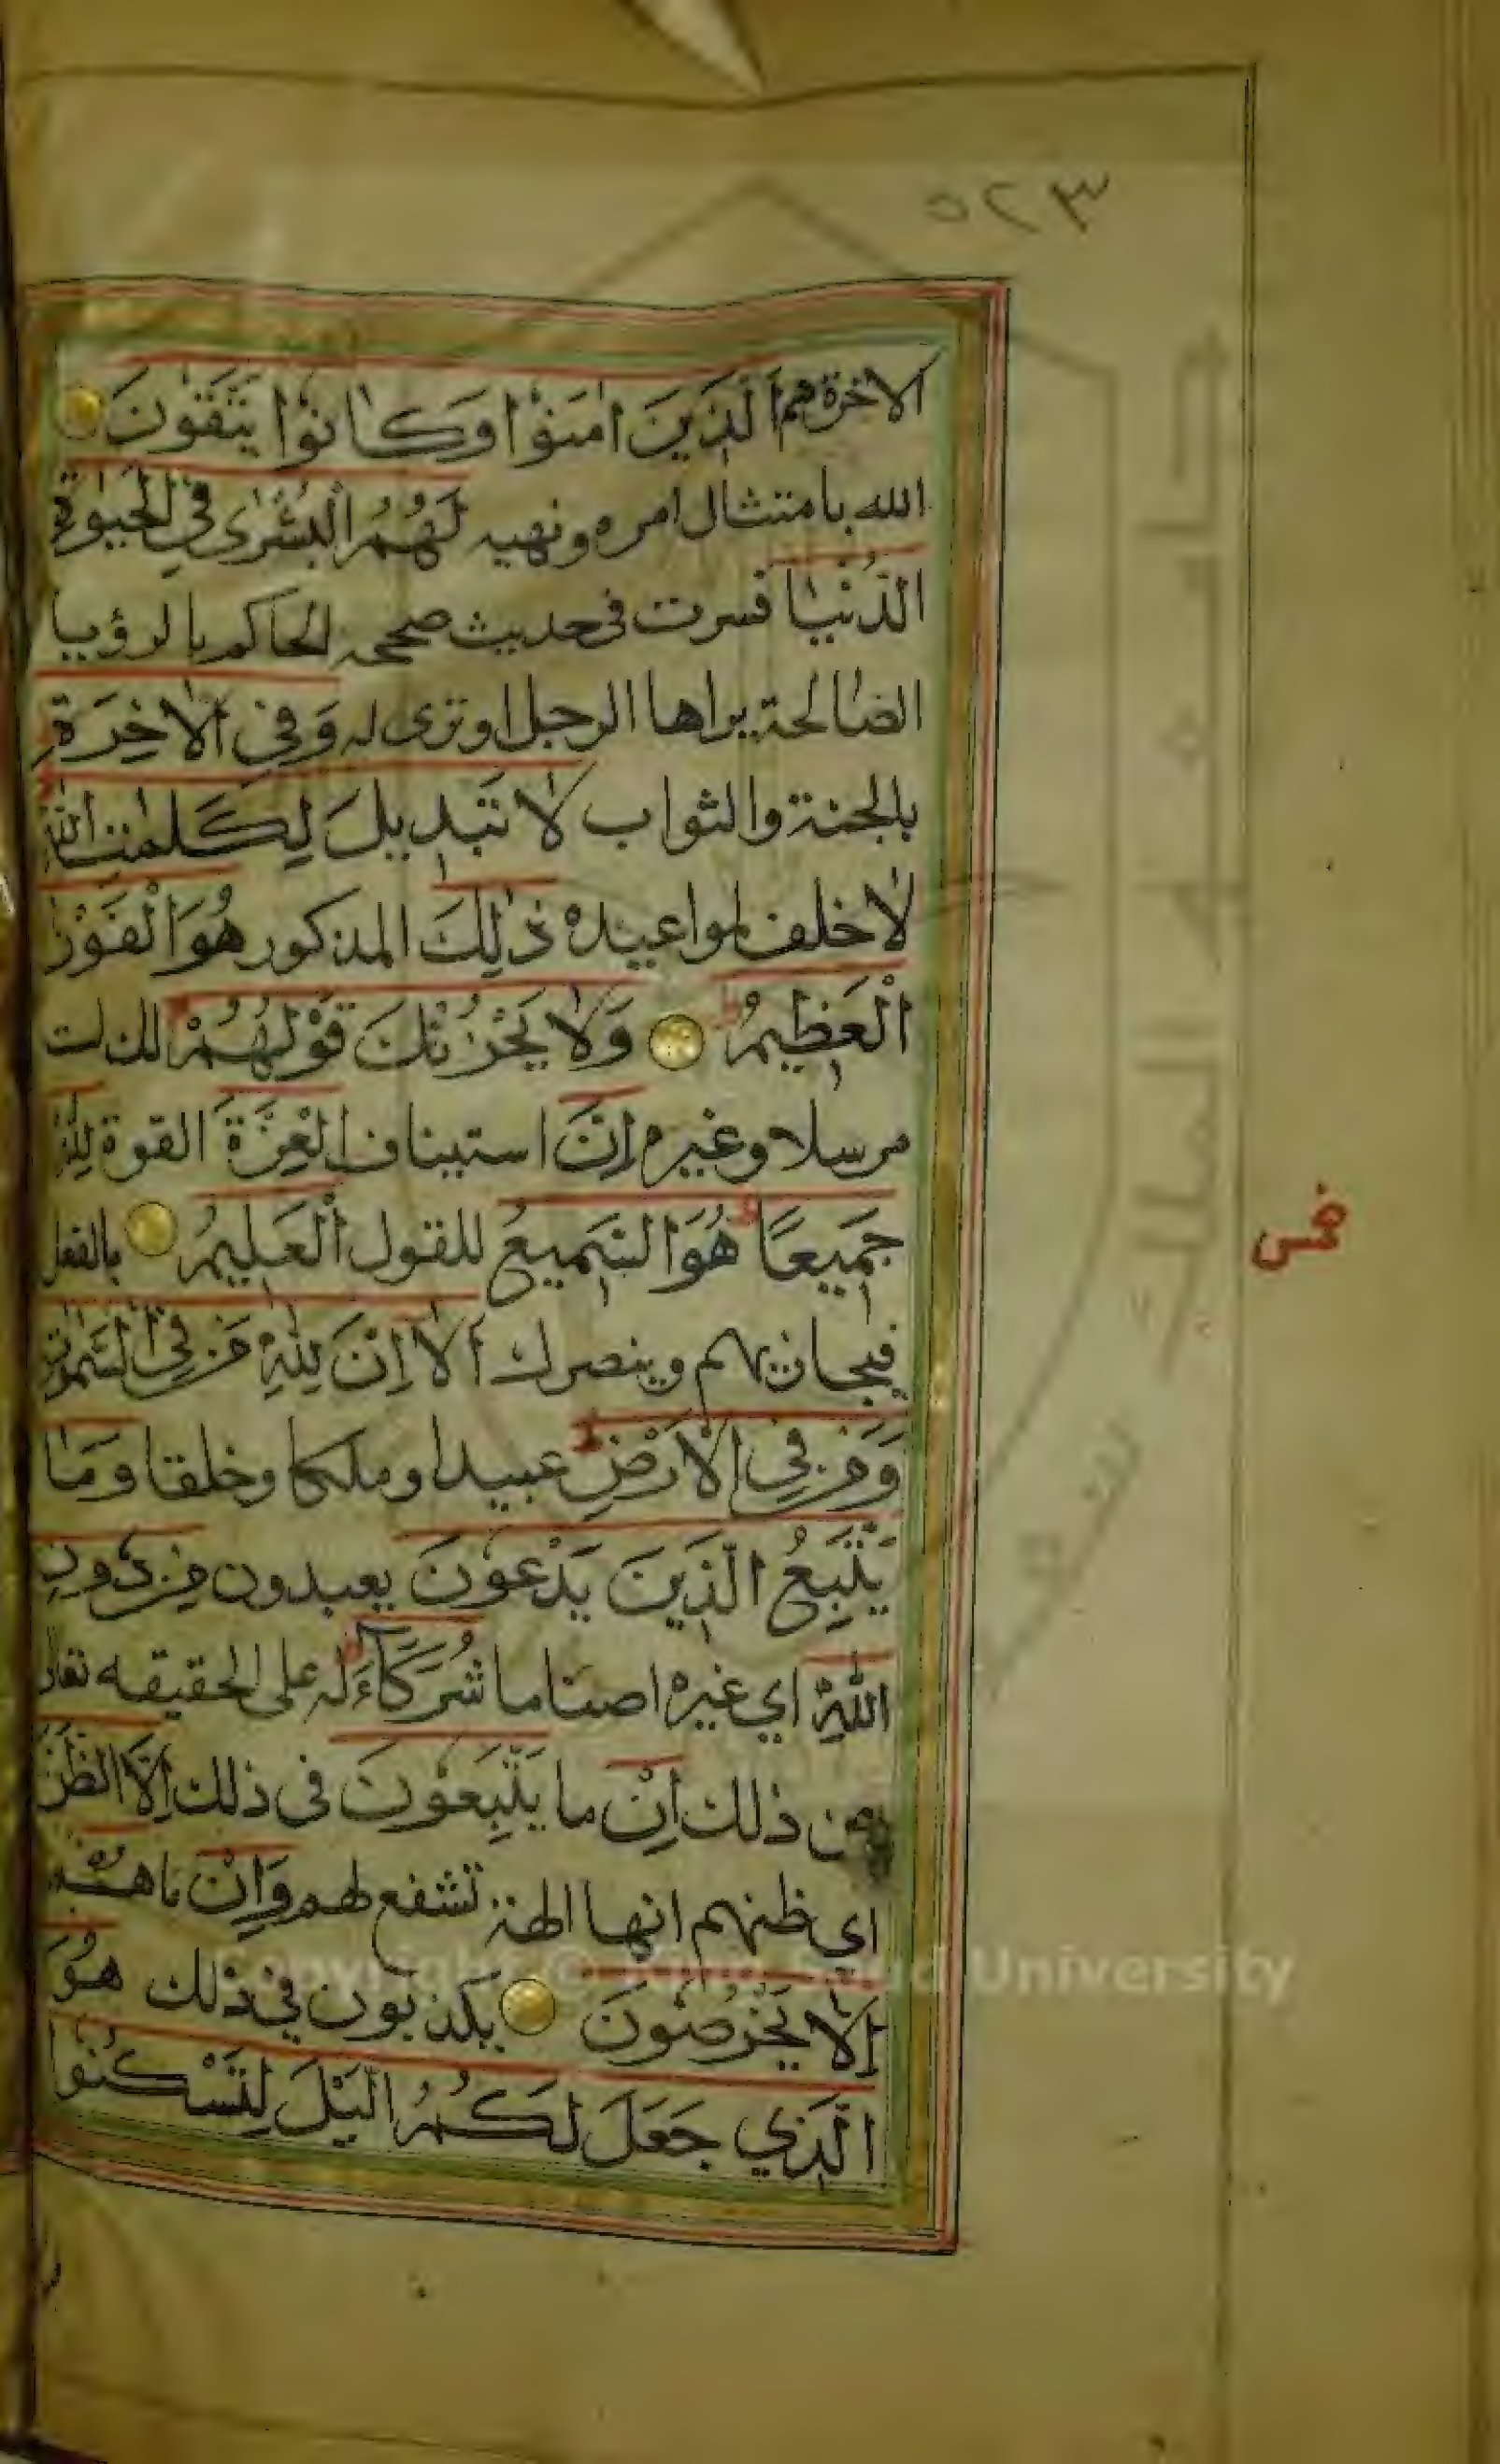 ٥٢٣
الاخرة هم الَّذِينَ اٰمَنُوْا وَكَانُوْا يَتَّقُوْنَ
الله بامتثال امره ونهيه لَهُمُ الْبُشْرٰى فِي الْحَيٰوةِ
الدُّنْيَا فسرت فى حديث صححه الحاكم بالرؤيا
الصالحة يراها الرجل او ترى له وَفِى الْاٰخِرَةِ
بالجنة والثواب لَا تَبْدِيلَ لِكَلِمٰتِ اللّٰهِ
لا خلف لمواعيده ذٰلِكَ المذكور هُوَ الْفَوْزُ
الْعَظِيمُ وَلَا يَحْزُنْكَ قَوْلُهُمْ لك لست
مرسلا وغيره اِنَّ استيناف الْعِزَّةَ القوة لِلّٰهِ
جَمِيعًا هُوَ السَّمِيعُ للقول الْعَلِيمُ بالفعل
فيجازيهم وينصرك اَلَا اِنَّ لِلّٰهِ مَنْ فِى السَّمٰوٰتِ
وَمَنْ فِى الْاَرْضِ عبيدا وملكا وخلقا وَمَا
يَتَّبِعُ الَّذِينَ يَدْعُوْنَ يعبدون مِنْ دُوْنِ
اللّٰهِ اي غيره اصناما شُرَكَاءَ له على الحقيقه تعالى
عن ذلك اِنْ ما يَتَّبِعُوْنَ فى ذلك اِلَّا الظَّنَّ
اي ظنهم انها الهة تشفع لهم وَاِنْ ما هُمْ
اِلَّا يَخْرُصُوْنَ يكذبون في ذلك هُوَ
الَّذِي جَعَلَ لَكُمُ الَّيْلَ لِتَسْكُنُوْا
خمس
جامعة الملك سعود
Copyright © King Saud University